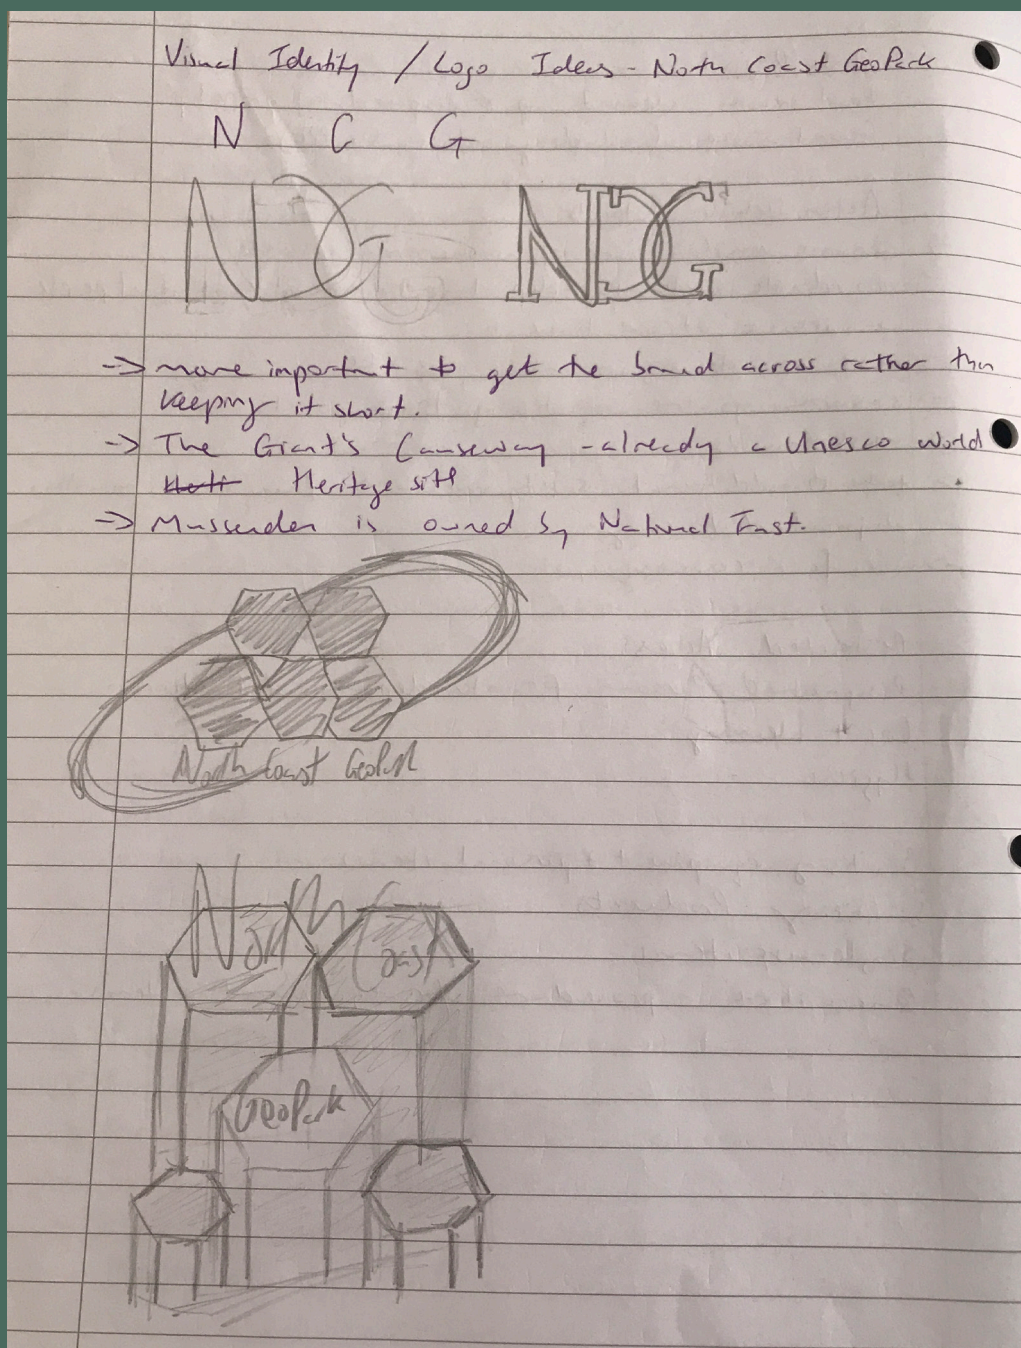 Visual Identity / Logo Ideas - North Coast GeoPark
N C G
NCG NCG
-> more important to get the brand across rather than
keeping it short.
-> The Giant's Causeway - already a Unesco World
Heritage site
-> Mussenden is owned by National Trust.
North Coast GeoPark
North Coast
GeoPark